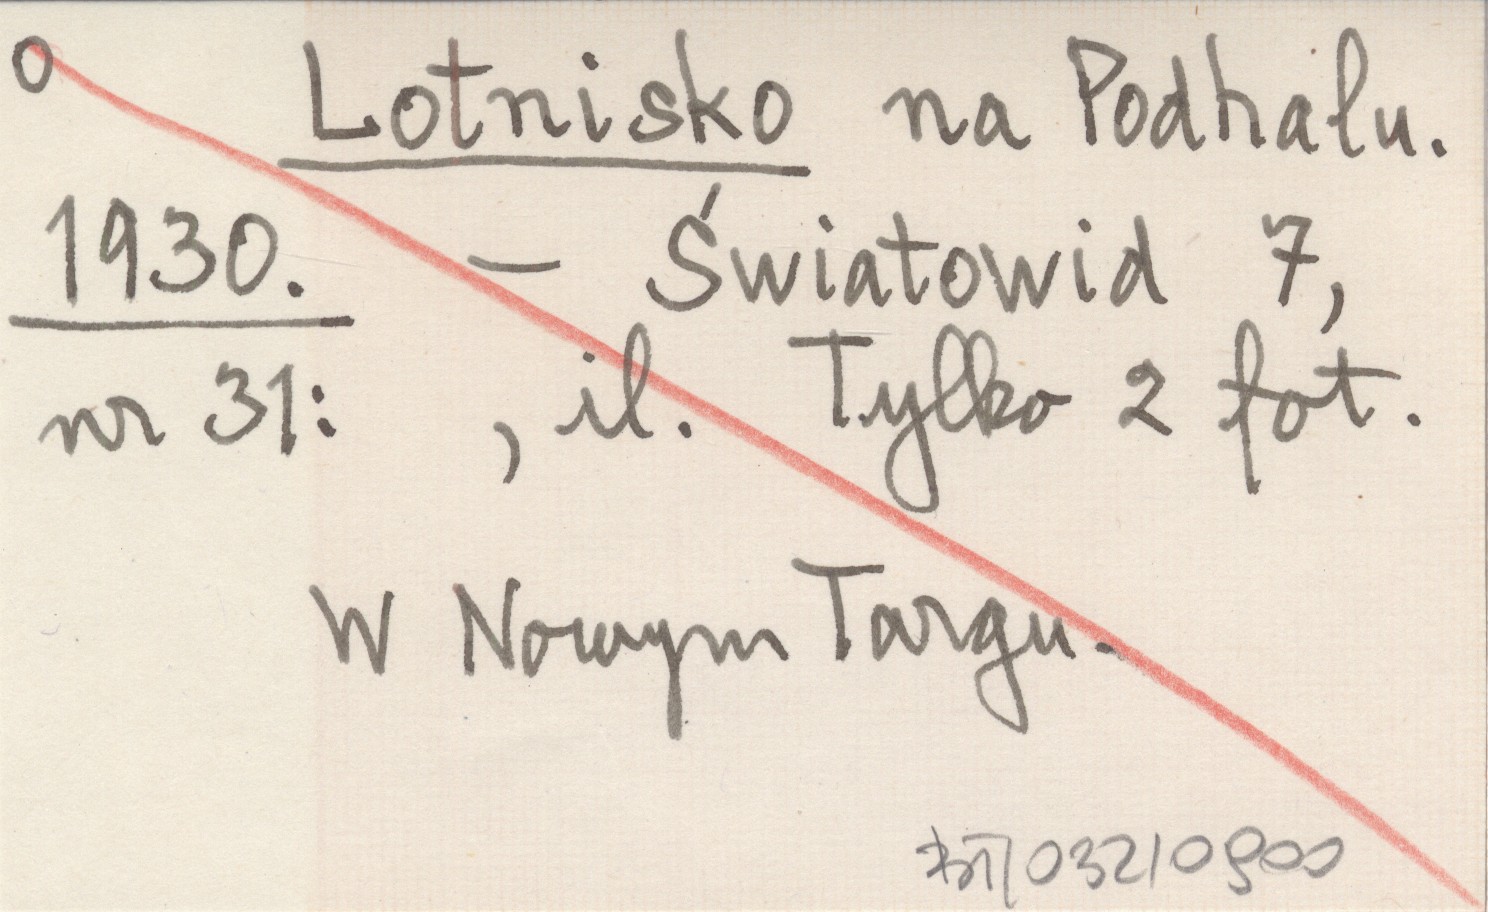 O Lotnisko na Podhalu.
1930. — Światowid 7,
nr 31: , il. Tylko 2 fot.
W Nowym Targu.
032/0900